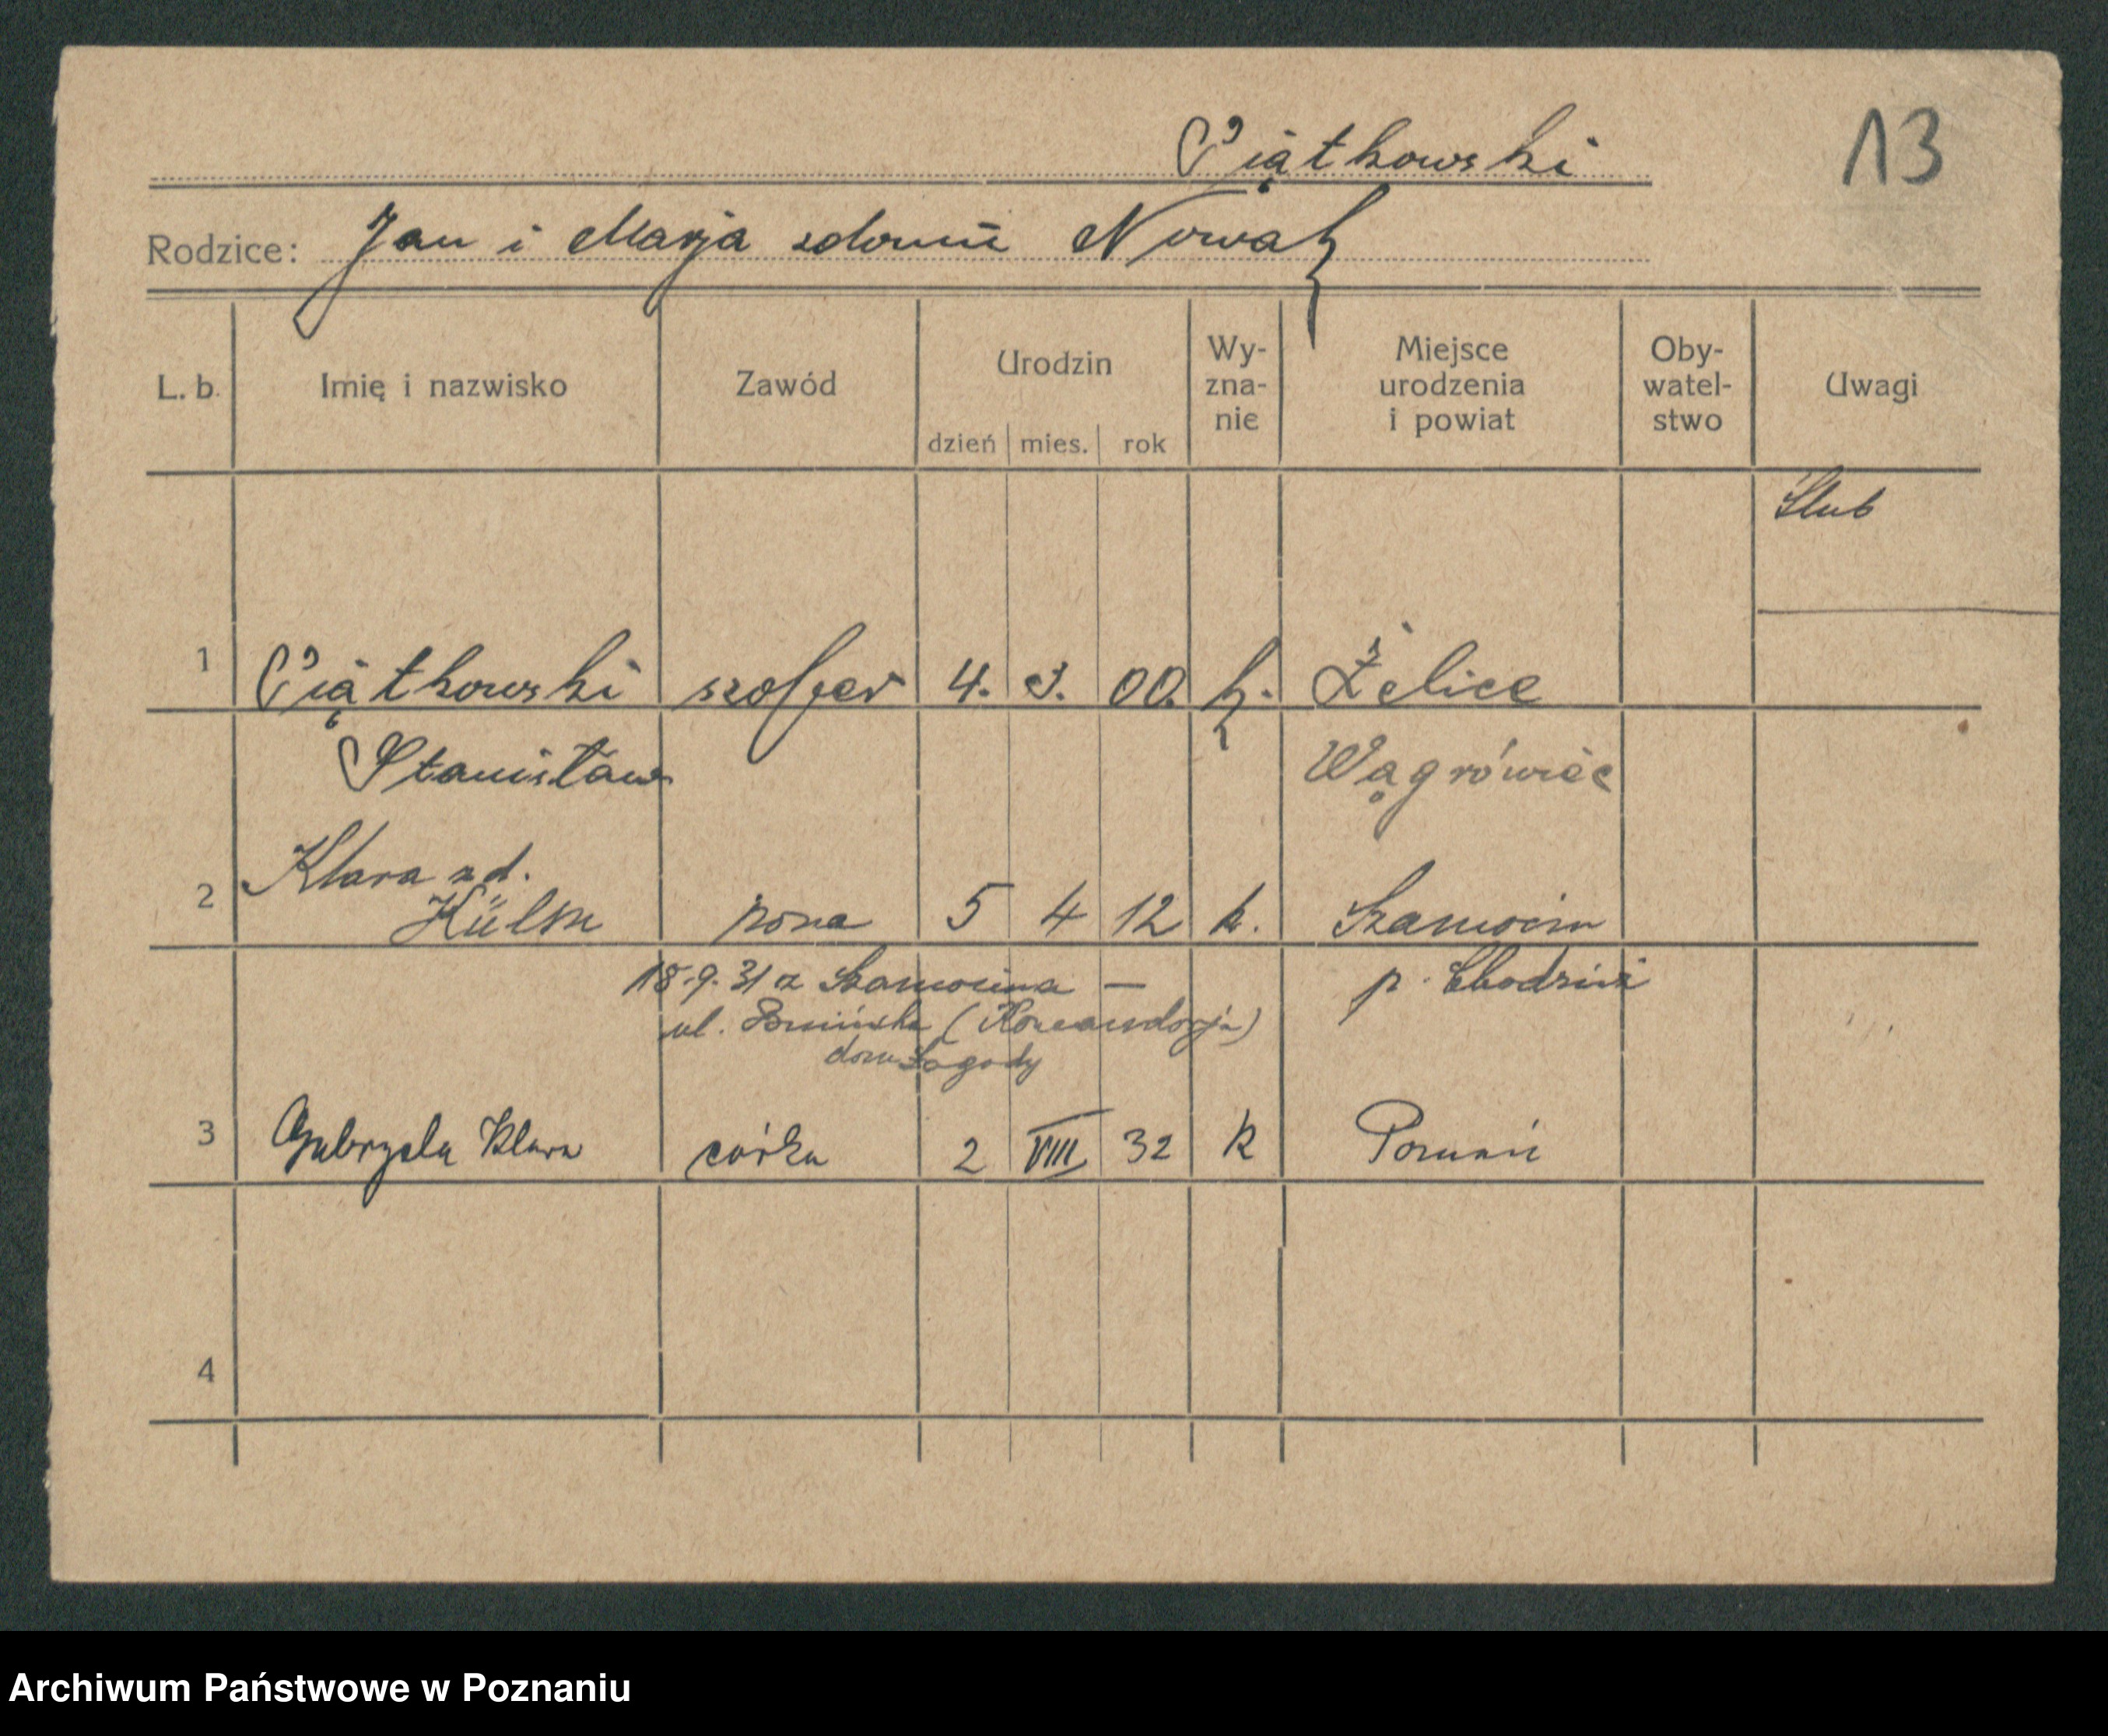 Piątkowski
13
Rodzice: Jan i Marja zdomu Nowak
L. b. Imię i nazwisko Zawód Urodzin dzień mies. rok Wy-zna-nie Miejsce urodzenia i powiat Oby-watel-stwo Uwagi
Ślub
1 Piątkowski szofer 4. 3. 00. k. Żelice
Stanisław Wągrówiec
Klara zd.
2 żona 5 4 12 k. Szamocin
18.9.31 z Szamocina — p. Chodzież
ul. (Komandorja)
dom Łagody
3 Gabryela Klara córka 2 VIII 32 k Poznań
4
Archiwum Państwowe w Poznaniu